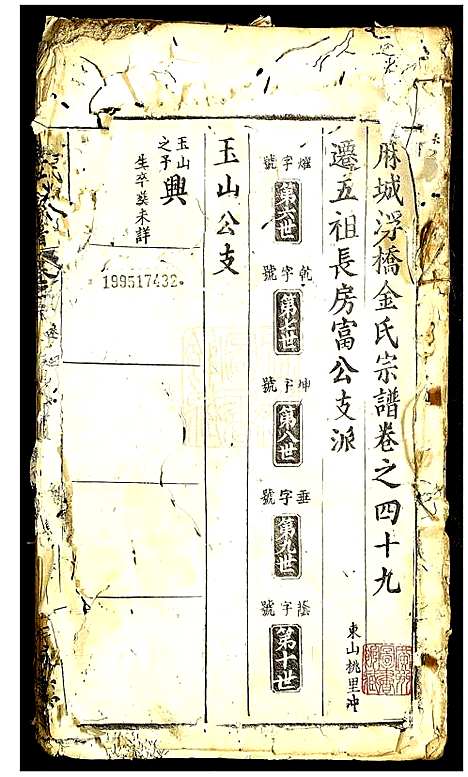 麻城浮橋金氏宗譜卷之四十九
東山桃里冲
遷五祖長房富公支派
耀字號
第六世
乾字號
第七世
坤字號
第八世
垂字號
第九世
蔭字號
第十世
玉山公支
玉山之子
興
生卒葬未詳
199517432